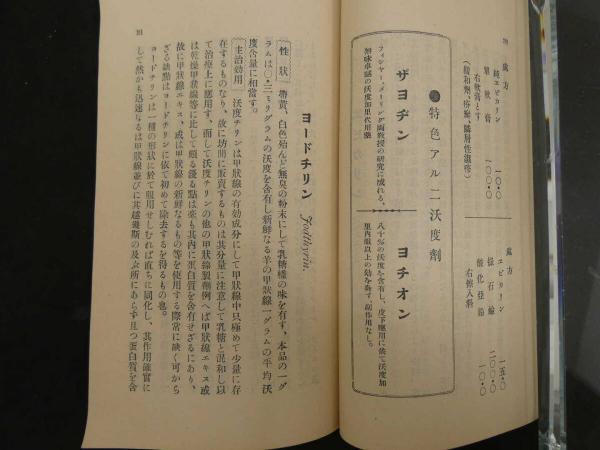 處方
純エピカリン 一〇・〇
單軟膏 一〇〇・〇
右軟膏とす
處方
エピカリン 一五・〇
滑石末
酸化亞鉛 一〇・〇
右撒入料
特色アル二沃度劑
サヨヂン
フィシャー、メーリング兩教授の研究に成れる、
無味卓效の沃度加里代用藥
ヨチオン
八十%の沃度を含有し、皮下應用に依て沃度加
里內服以上の効を奏す、副作用なし。
ヨードチリン Jodthyrin.
性狀 帶黄、白色殆んど無臭の粉末にして乳糖樣の味を有す、本品の一グ
ラムは〇・三ミリグラムの沃度を含有し新鮮なる羊の甲狀線一グラムの平均沃
度含量に相當す。
主治効用 沃度チリンは甲狀線の有効成分にして甲狀線中只極めて少量に存
在するものなり、故に坊間に販賣するものは其分量に注意して乳糖と混和し以
て治療上に應用す、而して沃度チリンの他の甲狀線製劑例へば甲狀線エキス或
は乾燥甲狀線等に比して頗る優る點は毫も其內に蛋白質を含有せざるにあり、
故に甲狀線エキス、或は甲狀線の新鮮なるもの等を使用する際常に缺く可から
ざる缺點はヨードチリンに依て初めて除去するを得るもの也。
ヨードチリンは一種の形狀に於て服用せしむれば直ちに同化し、其作用確實に
して然かも迅速なるは甲狀線並びに其越幾斯の及ぶ所にあらず且つ蛋白質を含